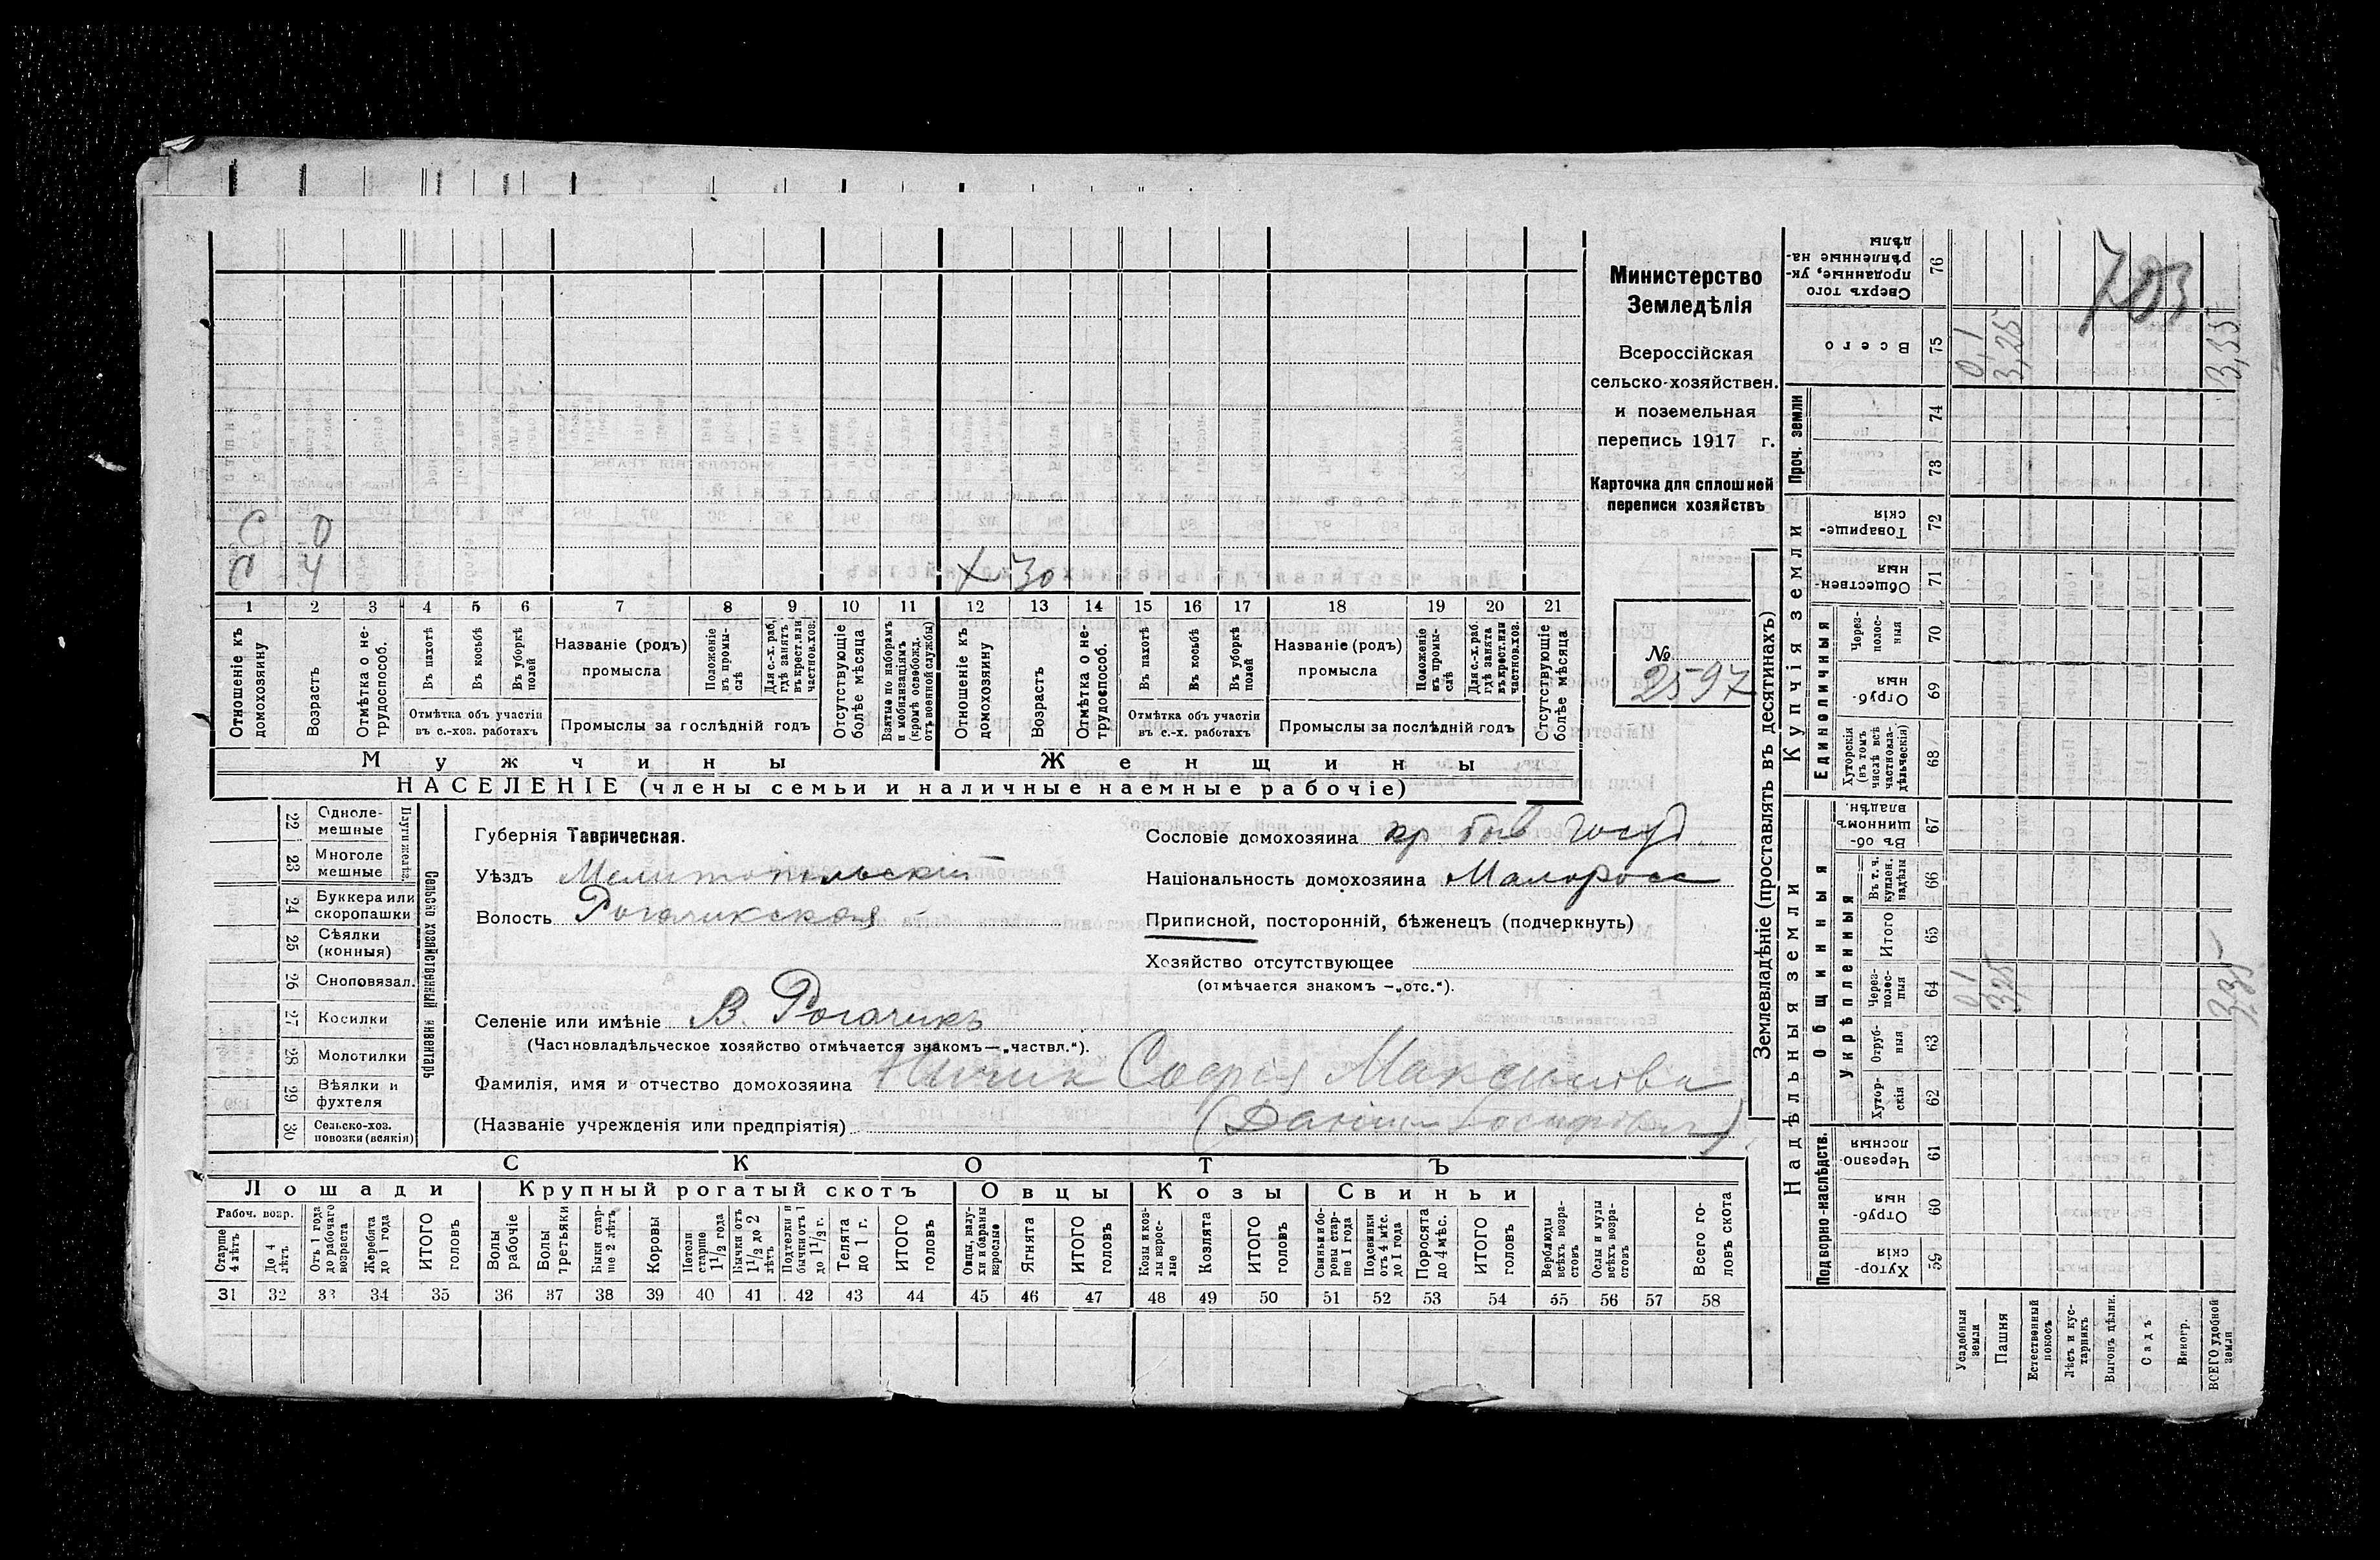 С 0
С 4 Х 30
1 2 3 4 5 6 7 8 9 10 11 12 13 14 15 16 17 18 19 20 21
Отношеніе къ домохозяину
Возрастъ
Отмѣтка о не-трудоспособ.
Въ пахотѣ
Въ косьбѣ
Въ уборкѣ полей
Отмѣтка объ участіи въ с.-хоз. работахъ
Названіе (родъ) промысла
Положеніе въ промы-слѣ
Для с.-х. раб, гдѣ занятъ въ крест. или частнов. хоз.
Промыслы за послѣдній годъ
Отсутствующіе болѣе мѣсяца
Взятые по наборамъ и мобилизаціямъ (кромѣ освобожд. отъ военной службы)
Отношеніе къ домохозяину
Возрастъ
Отмѣтка о не-трудоспособ.
Въ пахотѣ
Въ косьбѣ
Въ уборкѣ полей
Отмѣтка объ участіи въ с.-х. работахъ
Названіе (родъ) промысла
Положеніе въ промы-слѣ
Для с.-х. раб. гдѣ занята въ крест. или частнов. хоз.
Промыслы за послѣдній годъ
Отсутствующіе болѣе мѣсяца
Мужчины Женщины
НАСЕЛЕНІЕ (члены семьи и наличные наемные рабочіе)
Министерство
Земледѣлія
Всероссійская
сельско-хозяйствен.
и поземельная
перепись 1917 г.
Карточка для сплошной
переписи хозяйствъ
№
2597
Сельско хозяйственный инвентарь
Плуги желѣз.
22 Однолемешные
23 Многолемешные
24 Буккера или скоропашки
25 Сѣялки (конныя)
26 Сноповязал.
27 Косилки
28 Молотилки
29 Вѣялки и фухтеля
30 Сельско-хоз. повозки (всякія)
Губернія Таврическая.
Уѣздъ Мелитопольскій
Волость Рогачикская
Сословіе домохозяина кр быв госуд.
Національность домохозяина Малоросс
Приписной, посторонній, бѣженецъ (подчеркнуть)
Хозяйство отсутствующее
(отмѣчается знакомъ —„отс.“).
Селеніе или имѣніе В. Рогачикъ
(Частновладѣльческое хозяйство отмѣчается знакомъ—„частвл.“).
Фамилія, имя и отчество домохозяина Софія Максимова
(Названіе учрежденія или предпріятія)
СКОТЪ
Лошади Крупный рогатый скотъ Овцы Козы Свиньи
Рабоч. возр.
Старше 4 лѣтъ
До 4 лѣтъ
Отъ 1 года до рабочаго возраста
Жеребята до 1 года
ИТОГО головъ
Волы рабочіе
Волы третьяки
Быки стар-ше 2 лѣтъ
Коровы
Нетели старше 1 1/2 года
Бычки отъ 1 1/2 до 2 лѣтъ
Подтелки и бычки отъ 1 до 1 1/2 г.
Телята до 1 г.
ИТОГО головъ
Овцы, валу-хи и бараны взрослые
Ягнята
ИТОГО головъ
Козы и коз-лы взрос-лые
Козлята
ИТОГО головъ
Свиньи и бо-ровы стар-ше 1 года
Подсвинки отъ 4 мѣс. до 1 года
Поросята до 4 мѣс.
ИТОГО головъ
Верблюды всѣхъ возра-стовъ
Ослы и мулы всѣхъ возра-стовъ
Всего го-ловъ скота
31 32 33 34 35 36 37 38 39 40 41 42 43 44 45 46 47 48 49 50 51 52 53 54 55 56 57 58
Землевладѣніе (проставлять въ десятинахъ)
Надѣльныя земли
Купчія земли
Подворно-наслѣдств.
Общинныя
Укрѣпленныя
Единоличныя
Проч. земли
Хутор-скія 59
Отруб-ныя 60
Черезпо-лосныя 61
Хутор-скія 62
Отруб-ныя 63
Через-полос-ныя 64
Итого 65
Въ т. ч. куплен. надѣлы 66
Въ об-щинномъ владѣн. 67
Хуторскія (въ томъ числѣ всѣ частновла-дѣльческія) 68
Отруб-ныя 69
Через-полос-ныя 70
Обществен-ныя 71
Товарище-скія 72
73
74
Всего 75
Сверхъ того проданные, ук-рѣпленные на-дѣлы 76
Усадебныя земли 0,1 0,1
Пашня 3,25 3,25
Естественный покосъ
Лѣсъ и кус-тарникъ
Выгонъ цѣлин.
Садъ
Виногр.
ВСЕГО удобной земли 3,35 3,35
703